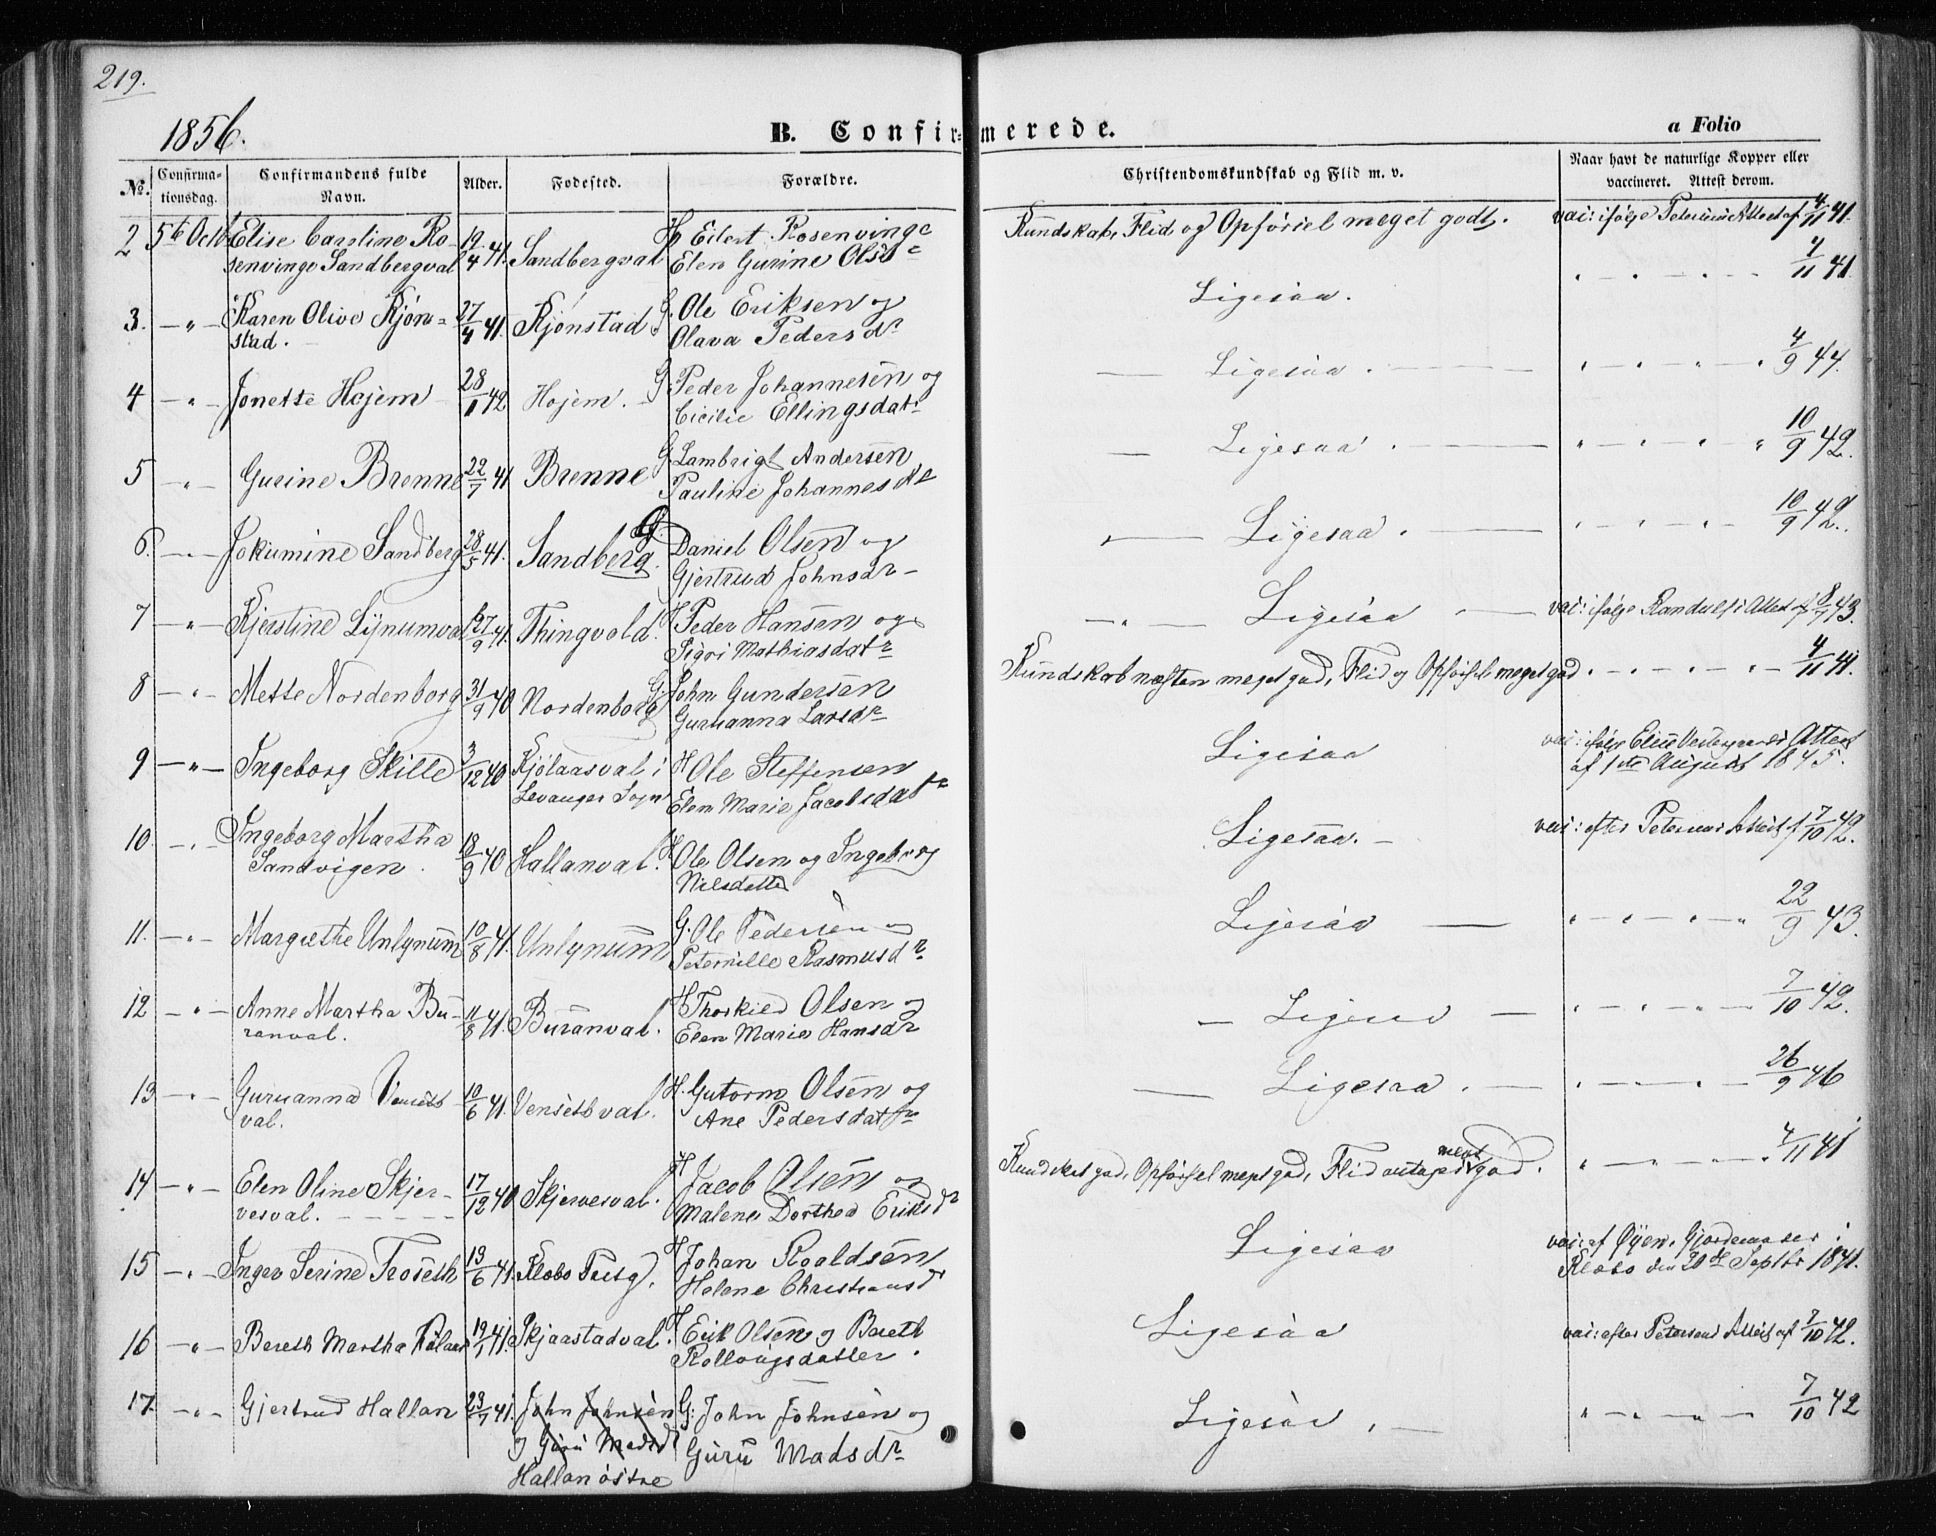 219.
1856.
B. Confirmerede.
a Folio
No. Confirmationsdag. Confirmandens fulde Navn. Alder. Fødested. Forældre. Christendomskundskab og Flid m. v. Naar havt de naturlige Kopper eller vaccineret. Attest derom.
2 5te Octb Elise Caroline Ro- 19/4 41. Sandbergval H Eilert Rosenvinge Kundskab, Flid og Opførsel meget godt. vac: ifølge Petersens Attest af 4/11 41.
senvinge Sandbergval Elen Gurine Olsd
3. — " — Karen Olive Kjøn= 27/4 41. Kjønstad G. Ole Eriksen og Ligesaa. " — " — " — 4/11 41.
stad. Olava Pedersdr
4 — " — Jonette Hojem 28/1 42 Hojem. G. Peder Johannesen og — Ligesaa. — " — " — " — " 4/9 44.
Cicilie Ellingsdatr
5 — " — Gurine Brenne 22/7 41 Brenne G. Lambrigt Andersen — Ligesaa. — " — " — " — " 10/9 42.
Pauline Johannesdr
6. — " — Jokumine Sandberg 28/5 41. Sandberg. G. Daniel Olsen og — Ligesaa. — " — " — " — 10/9 42.
Gjertrud Johnsdr
7 — " — Kjerstine Lynumval 27/9 41. Thingvold. H Peder Hansen og — " — Ligesaa — vac: ifølge Randulfs Attest af 8/7 43.
Sigri Mathiasdatr
8 — " — Mette Nordenborg 31/9 40 Nordenborg G. John Gundersen Kundskab næsten meget god, Flid og Opførsel meget god " — " — " — 4/11 41.
Guruanna Larsdr
9 — " — Ingeborg Skille 3/12 40 Kjølaasval i H Ole Steffensen Ligesaa vac: ifølge Elise Vestergaards Attest
Levanger Sogn Elen Marie Jacobsdatr af 1ste August 1845.
10. — " — Ingeborg Martha 18/9 40 Hallanval. H Ole Olsen og Ingeborg Ligesaa. — vac: efter Petersens Attest af 7/10 42.
Sandvigen. Nilsdatter
11. — " — Margrethe Unlynum 10/8 41. Unlynum G. Ole Pedersen og Ligesaa — " — " — " — " 22/9 43.
Peternille Rasmusdr
12 — " — Anne Martha Bu- 11/8 41. Buranval. H Thorkild Olsen og — Ligesaa — " — " — " — 7/10 42.
ranval. Elen Marie Hansdr
13 — " — Guruanna Venseth 10/6 41. Vensethval. H. Gutorm Olsen og — Ligesaa. — " — " — " — 26/9 46
val. Ane Pedersdatr
14 — " — Elen Oline Skjer- 17/12 40 Skjervesval. H Jacob Olsen og Kundskab god, Opførsel meget god, Flid meget god. " — " — " — " 4/11 41
vesval. Malene Dorthea Eriksdr
15 — " — Inger Serine Troseth 13/6 41. Klæbo Prstg. H Johan Roaldsen Ligesaa vac: af Øyen, Gjordemoder i
Helene Christiansdr Klæbo den 20de Septbr 1841.
16 — " — Bereth Martha Kølaas 19/1 41. Skjaastadval. H Erik Olsen og Bereth Ligesaa vac: efter Petersens Attest af 7/10 42.
Rollougsdatter.
17. — " — Gjertrud Hallan 23/7 41. John Johnsen G: John Johnsen og Ligesaa. — " — " — " — 7/10 42
og Guru Madsd Guru Madsdr
Hallan østre